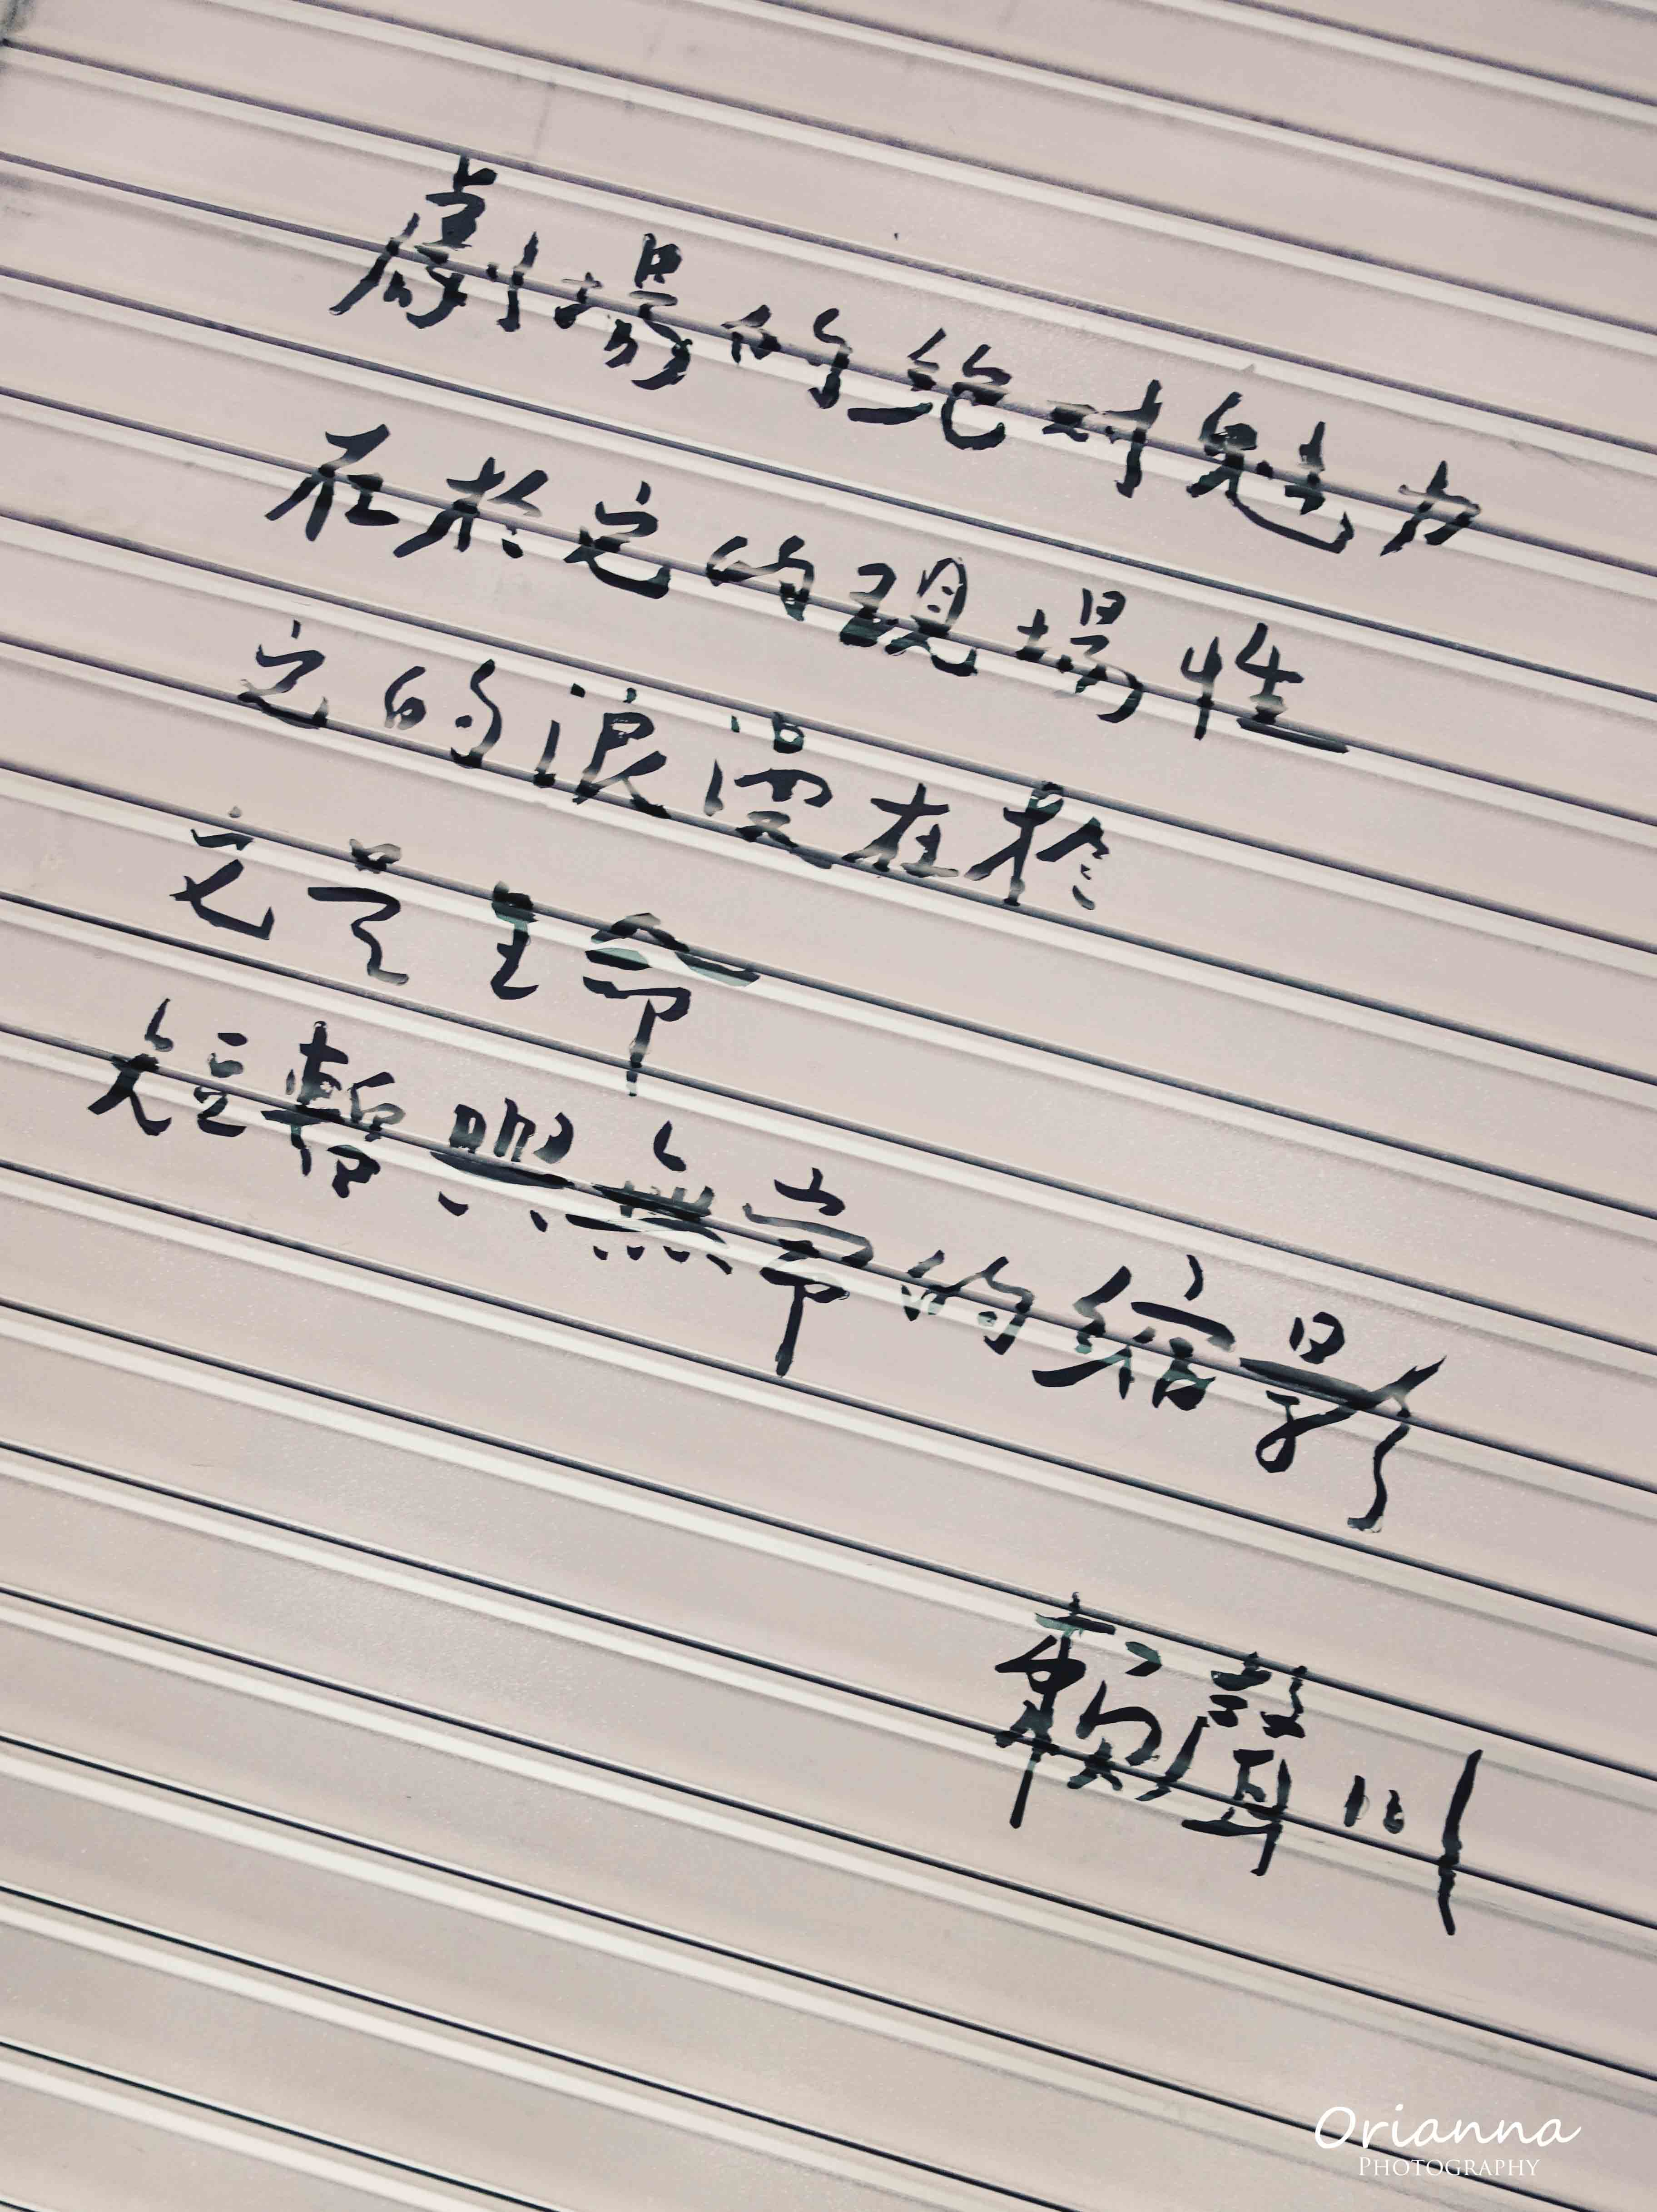 劇場的絶对魅力
在於它的現場性
它的浪漫在於
它是生命
短暫與無常的縮影
賴聲川
Orianna
PHOTOGRAPHY